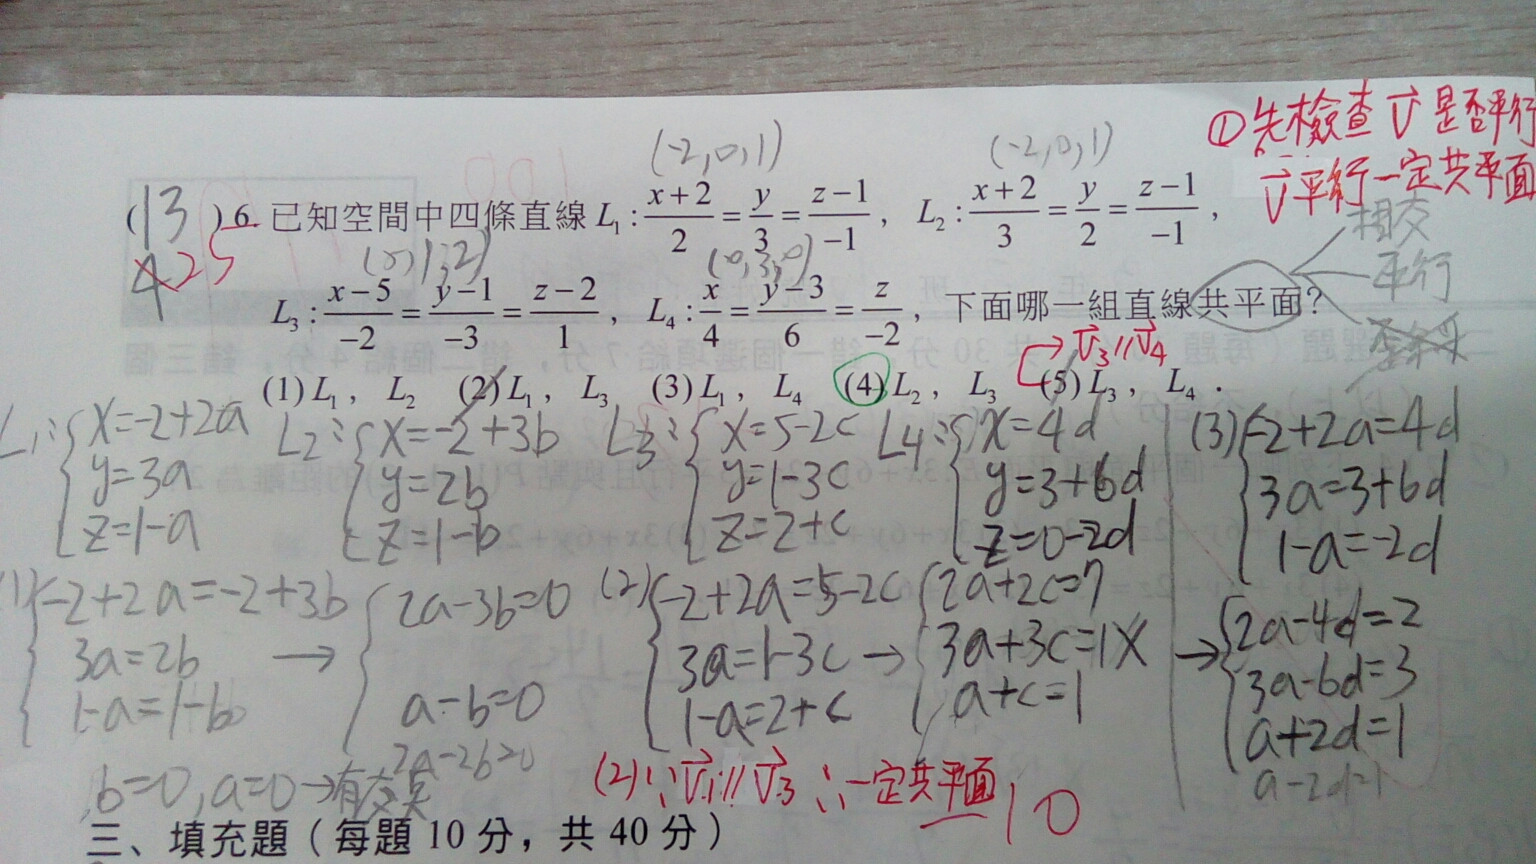 ①先檢查v⃗是否平行
v⃗平行一定共平面
(-2,0,1) (-2,0,1)
(13
425
)6. 已知空間中四條直線 L₁ : (x+2)/2 = y/3 = (z−1)/−1 , L₂ : (x+2)/3 = y/2 = (z−1)/−1 ,
相交
平行
L₃ : (x−5)/−2 = (y−1)/−3 = (z−2)/1 , L₄ : x/4 = (y−3)/6 = z/−2 , 下面哪一組直線共平面?
→ v⃗₃//v⃗₄
(1) L₁ , L₂ (2) L₁ , L₃ (3) L₁ , L₄ (4) L₂ , L₃ (5) L₃ , L₄ .
L₁: { x=-2+2a
y=3a
z=1-a
L₂: { x=-2+3b
y=2b
z=1-b
L₃: { x=5-2c
y=1-3c
z=2+c
L₄: { x=4d
y=3+6d
z=0-2d
(1) { -2+2a=-2+3b
3a=2b
1-a=1-b
→ { 2a-3b=0
a-b=0
2a-2b=0
b=0, a=0→有交
(2) { -2+2a=5-2c
3a=1-3c
1-a=2+c
→ { 2a+2c=7
3a+3c=1 X
a+c=1
(3) { -2+2a=4d
3a=3+6d
1-a=-2d
→ { 2a-4d=2
3a-6d=3
a+2d=1
a-2d=1
(2) ∵ v⃗₁//v⃗₃ ∴一定共平面
10
三、填充題（每題 10 分，共 40 分）